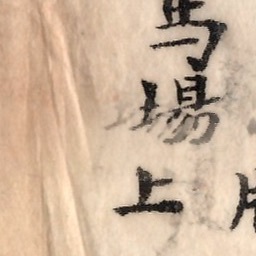 馬場上